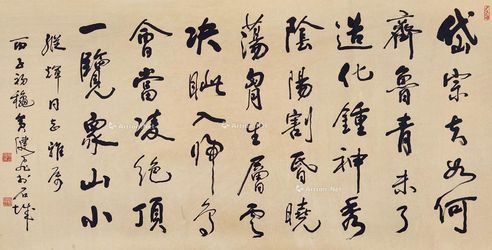 岱宗夫如何
齊魯青未了
造化鍾神秀
陰陽割昏曉
蕩胷生層云
决眦入歸鳥
會當凌絕頂
一覽眾山小
同志雅屬
丙子初龝黃建石城